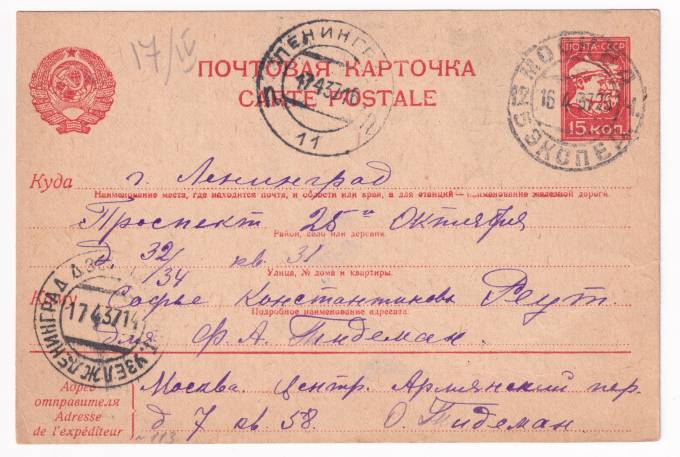 17/IV
ЛЕНИНГРАД
17 4 37 16
11
ПОЧТА·СССР
МОСКВА
16 4 37 23
ЭКСПЕД
15 КОП.
ПОЧТОВАЯ КАРТОЧКА
CARTE POSTALE
Куда г. Ленинград
Наименование места, где находится почта, и области или края, а для станций—наименование железной дороги.
Проспект 25го Октября
Район, село или деревня.
д 32/34 кв 31
Улица, № дома и квартиры.
Кому Софье Константиновне Реут
Подробное наименование адресата.
для Ф. А. Тидеман.
ЛЕНИНГРАД
17 4 37 14
УЗЕЛ
Адрес отправителя Москва. Центр. Армянский пер.
Adresse de l'expéditeur д 7 кв 58. О. Тидеман
№ 113